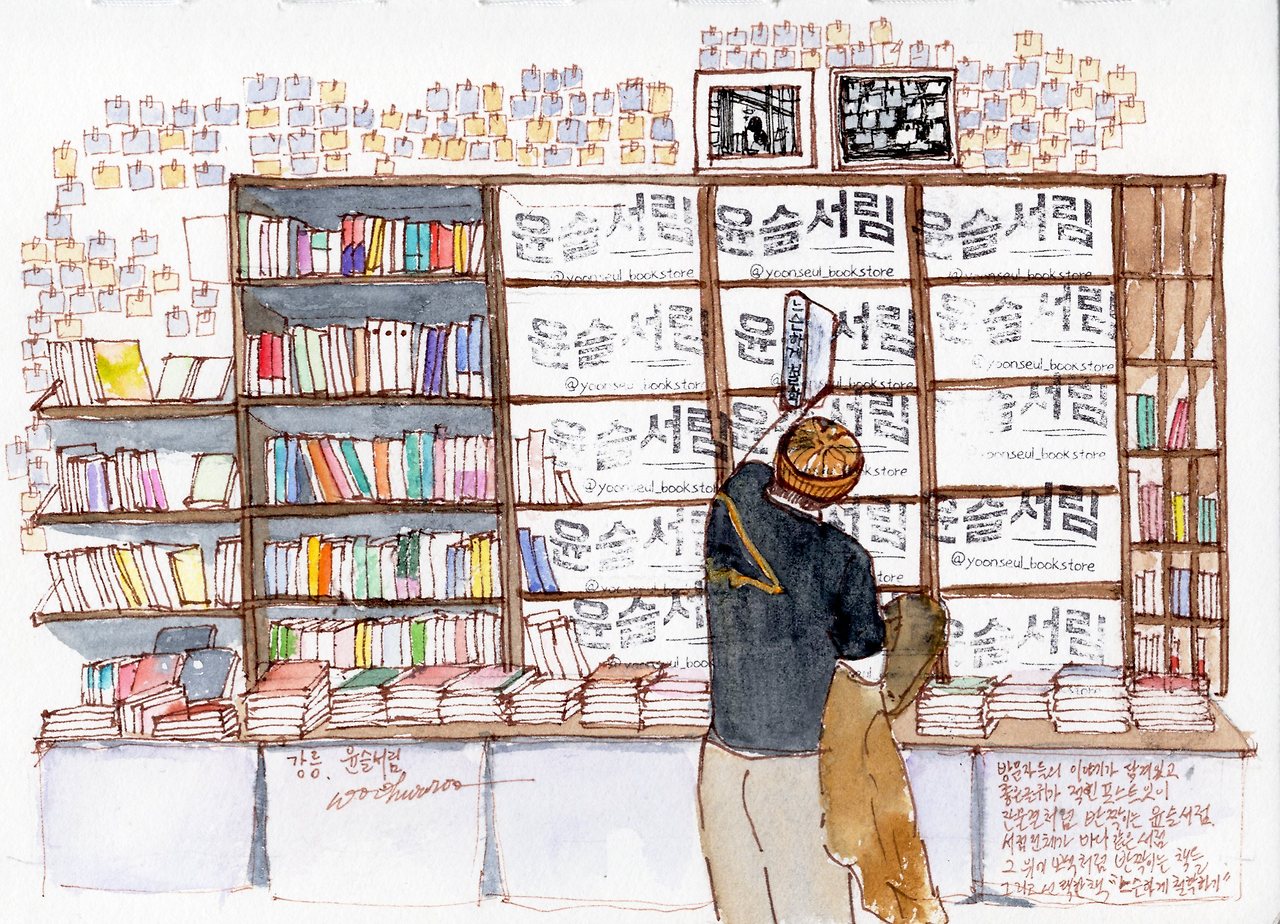 윤슬서림 윤슬서림 윤슬서림
@yoonseul_bookstore @yoonseul_bookstore @yoonseul_bookstore
윤슬서림 윤 서림 윤슬서림
@yoonseul_bookstore @yo store @yoonseul_bookstore
윤슬서림 윤 서림 서림
@yoonseul_bookstore store yoonseul_bookstore
윤슬서 윤슬서림
@yoonseul @yoonseul_bookstore
윤슬서 윤슬서림
@yoonseul_boo store
강릉. 윤슬서림
woohwaroo
방문자들의 이야기가 담겨있고
좋은글귀가 적힌 포스트잇이
윤슬처럼 반짝이는 윤슬서점.
서점전체가 바다 같은 서림
그 위에 보석처럼 반짝이는 책들,
그리고 선택한 책 "느슨하게 철학하기".